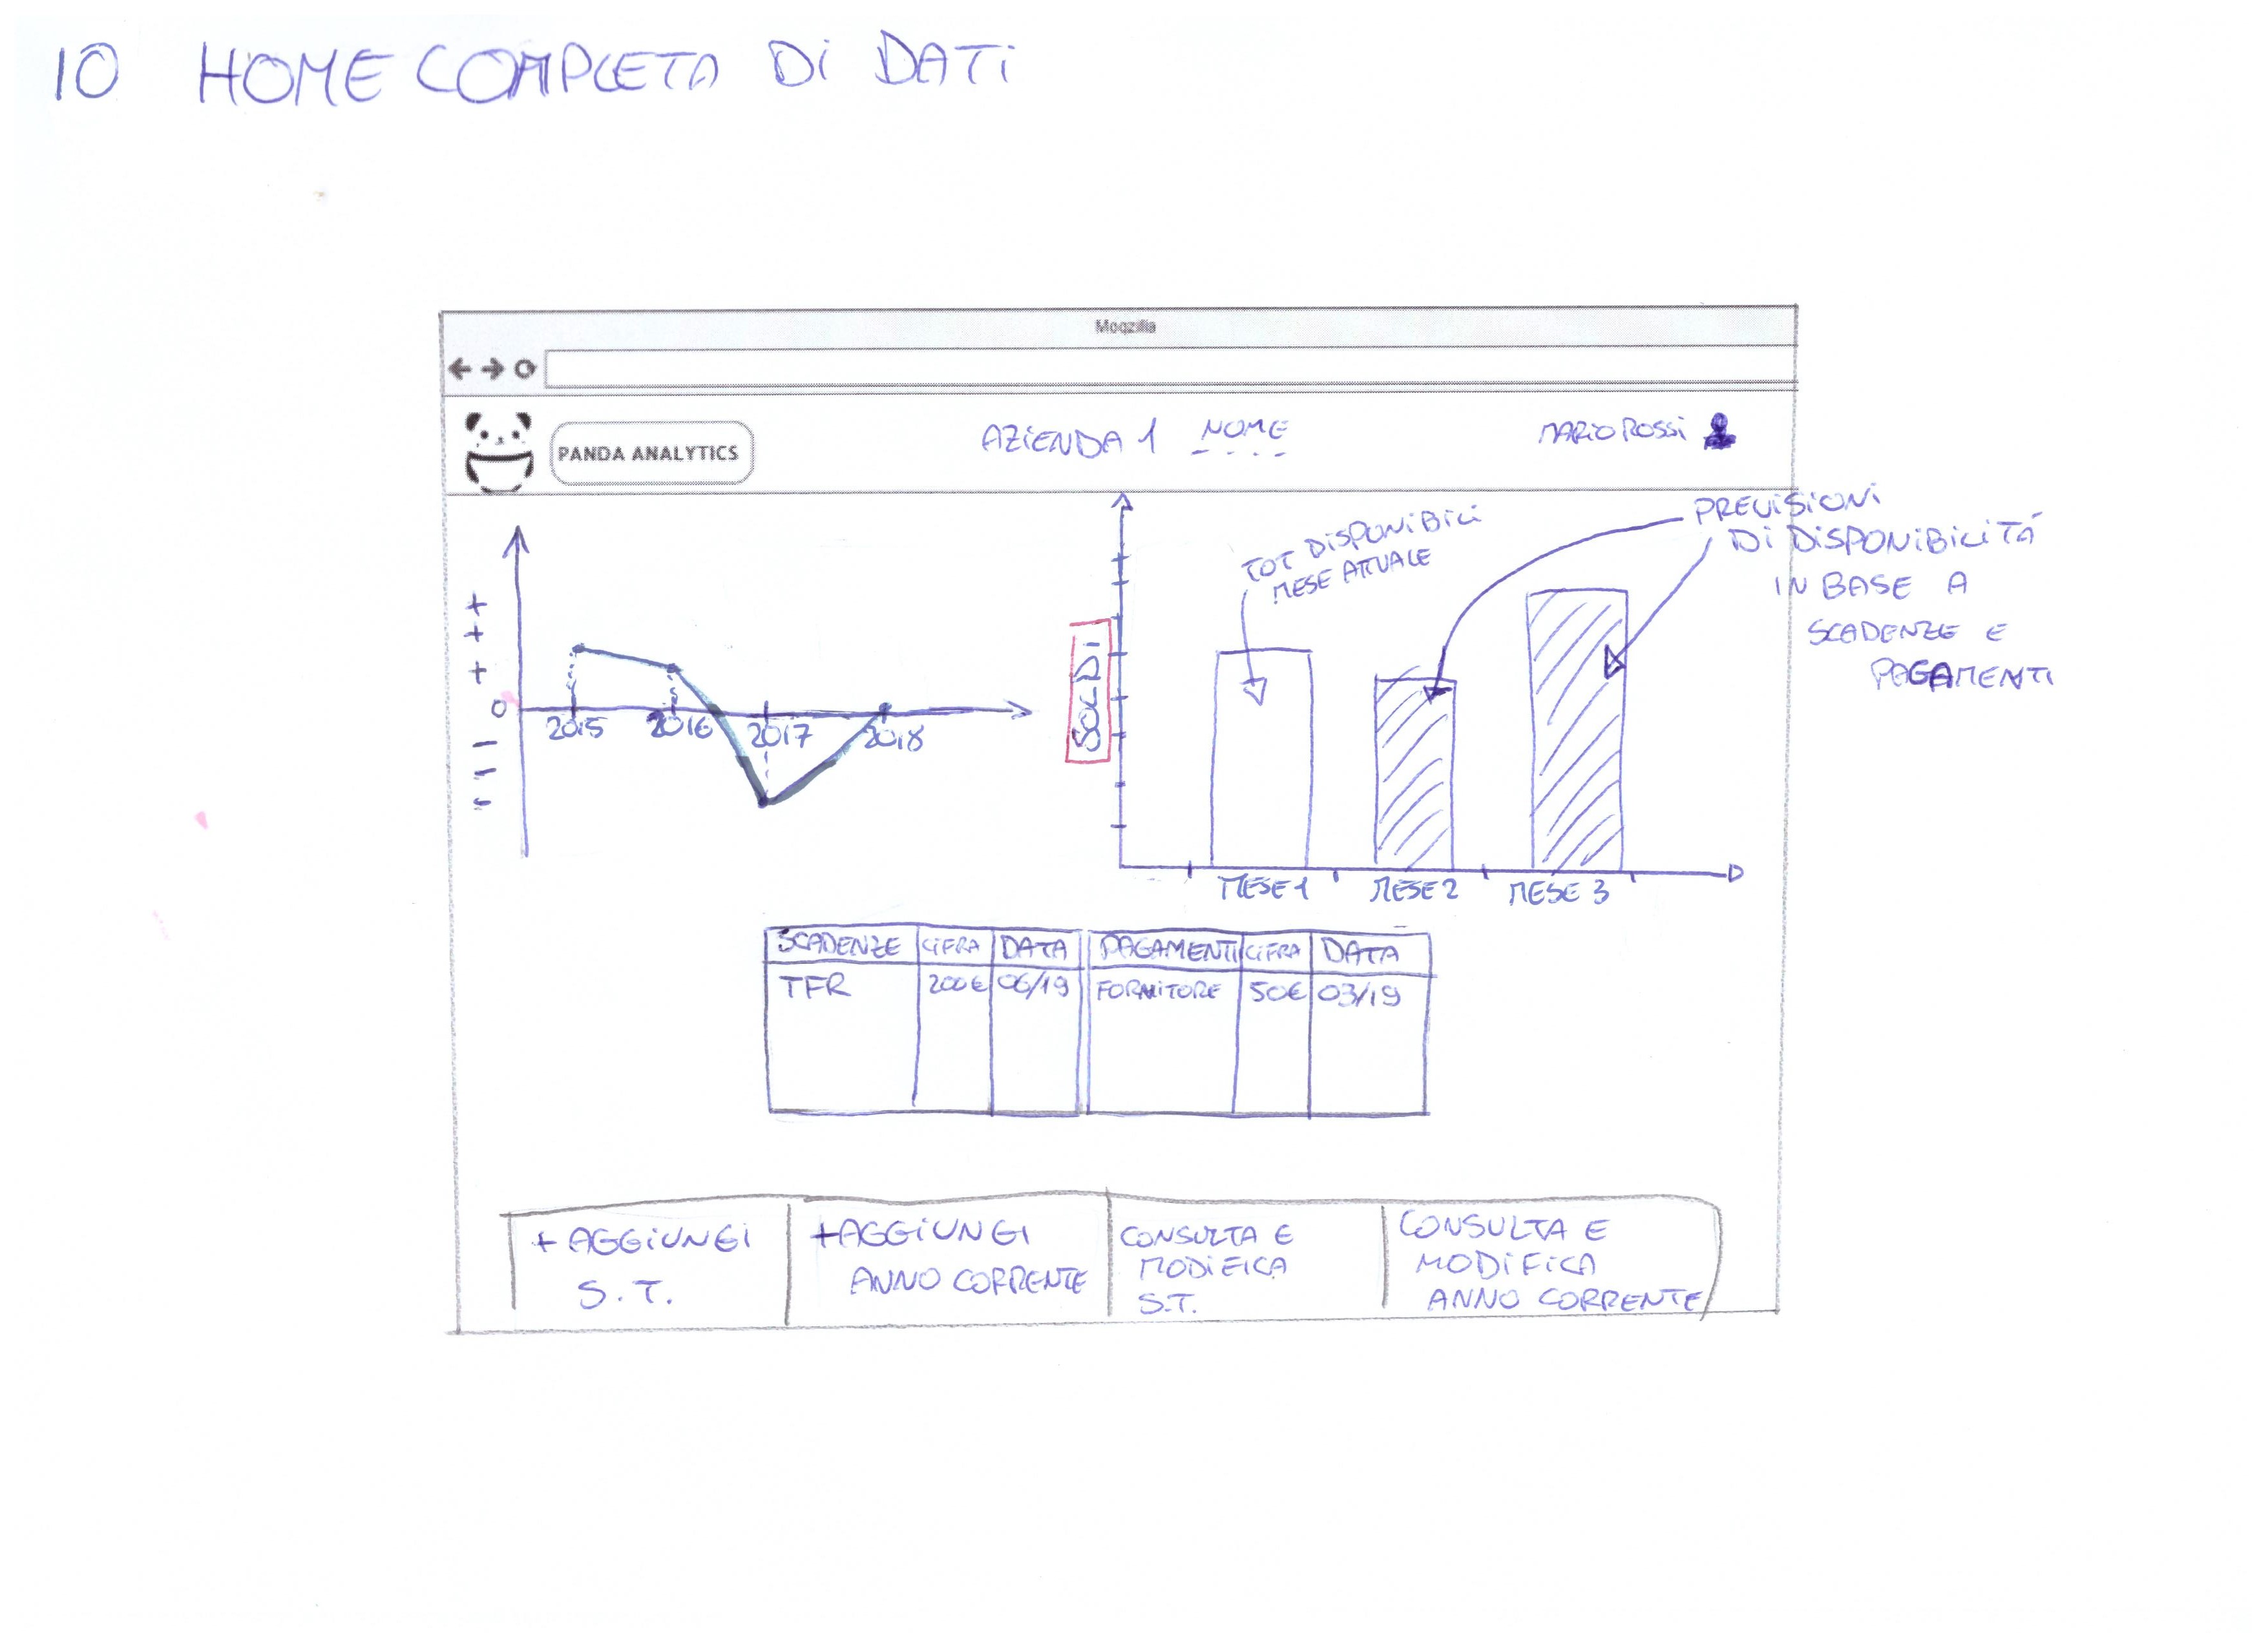 10 HOME COMPLETA Di DATi
Moqzilla
PANDA ANALYTICS
AZiENDA 1 NOME
MARiO ROSSi
+
+
+
0
-
-
-
2015 2016 2017 2018
SOLDi
TOT DiSPONiBiLi
MESE ATTUALE
PREViSiONi
Di DiSPONiBiLiTÁ
IN BASE A
SCADENZE E
PAGAMENTi
MESE 1 MESE 2 MESE 3
SCADENZE CiFRA DATA PAGAMENTi CiFRA DATA
TFR 200€ 06/19 FORNiTORE 50€ 03/19
+ AGGiUNGi
S.T.
+AGGiUNGi
ANNO CORRENTE
CONSULTA E
MODiFiCA
S.T.
CONSULTA E
MODiFiCA
ANNO CORRENTE